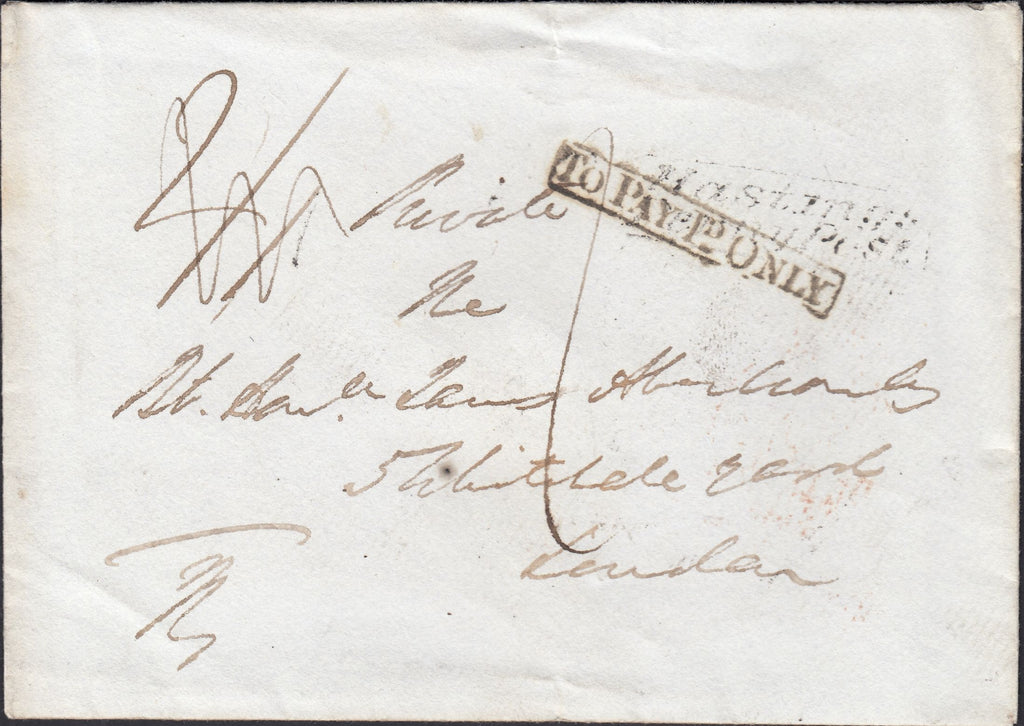 Private
TO PAY 1D ONLY
Hastings
The
Rt. Honble James Abercromby
5 Whitehale yard
London